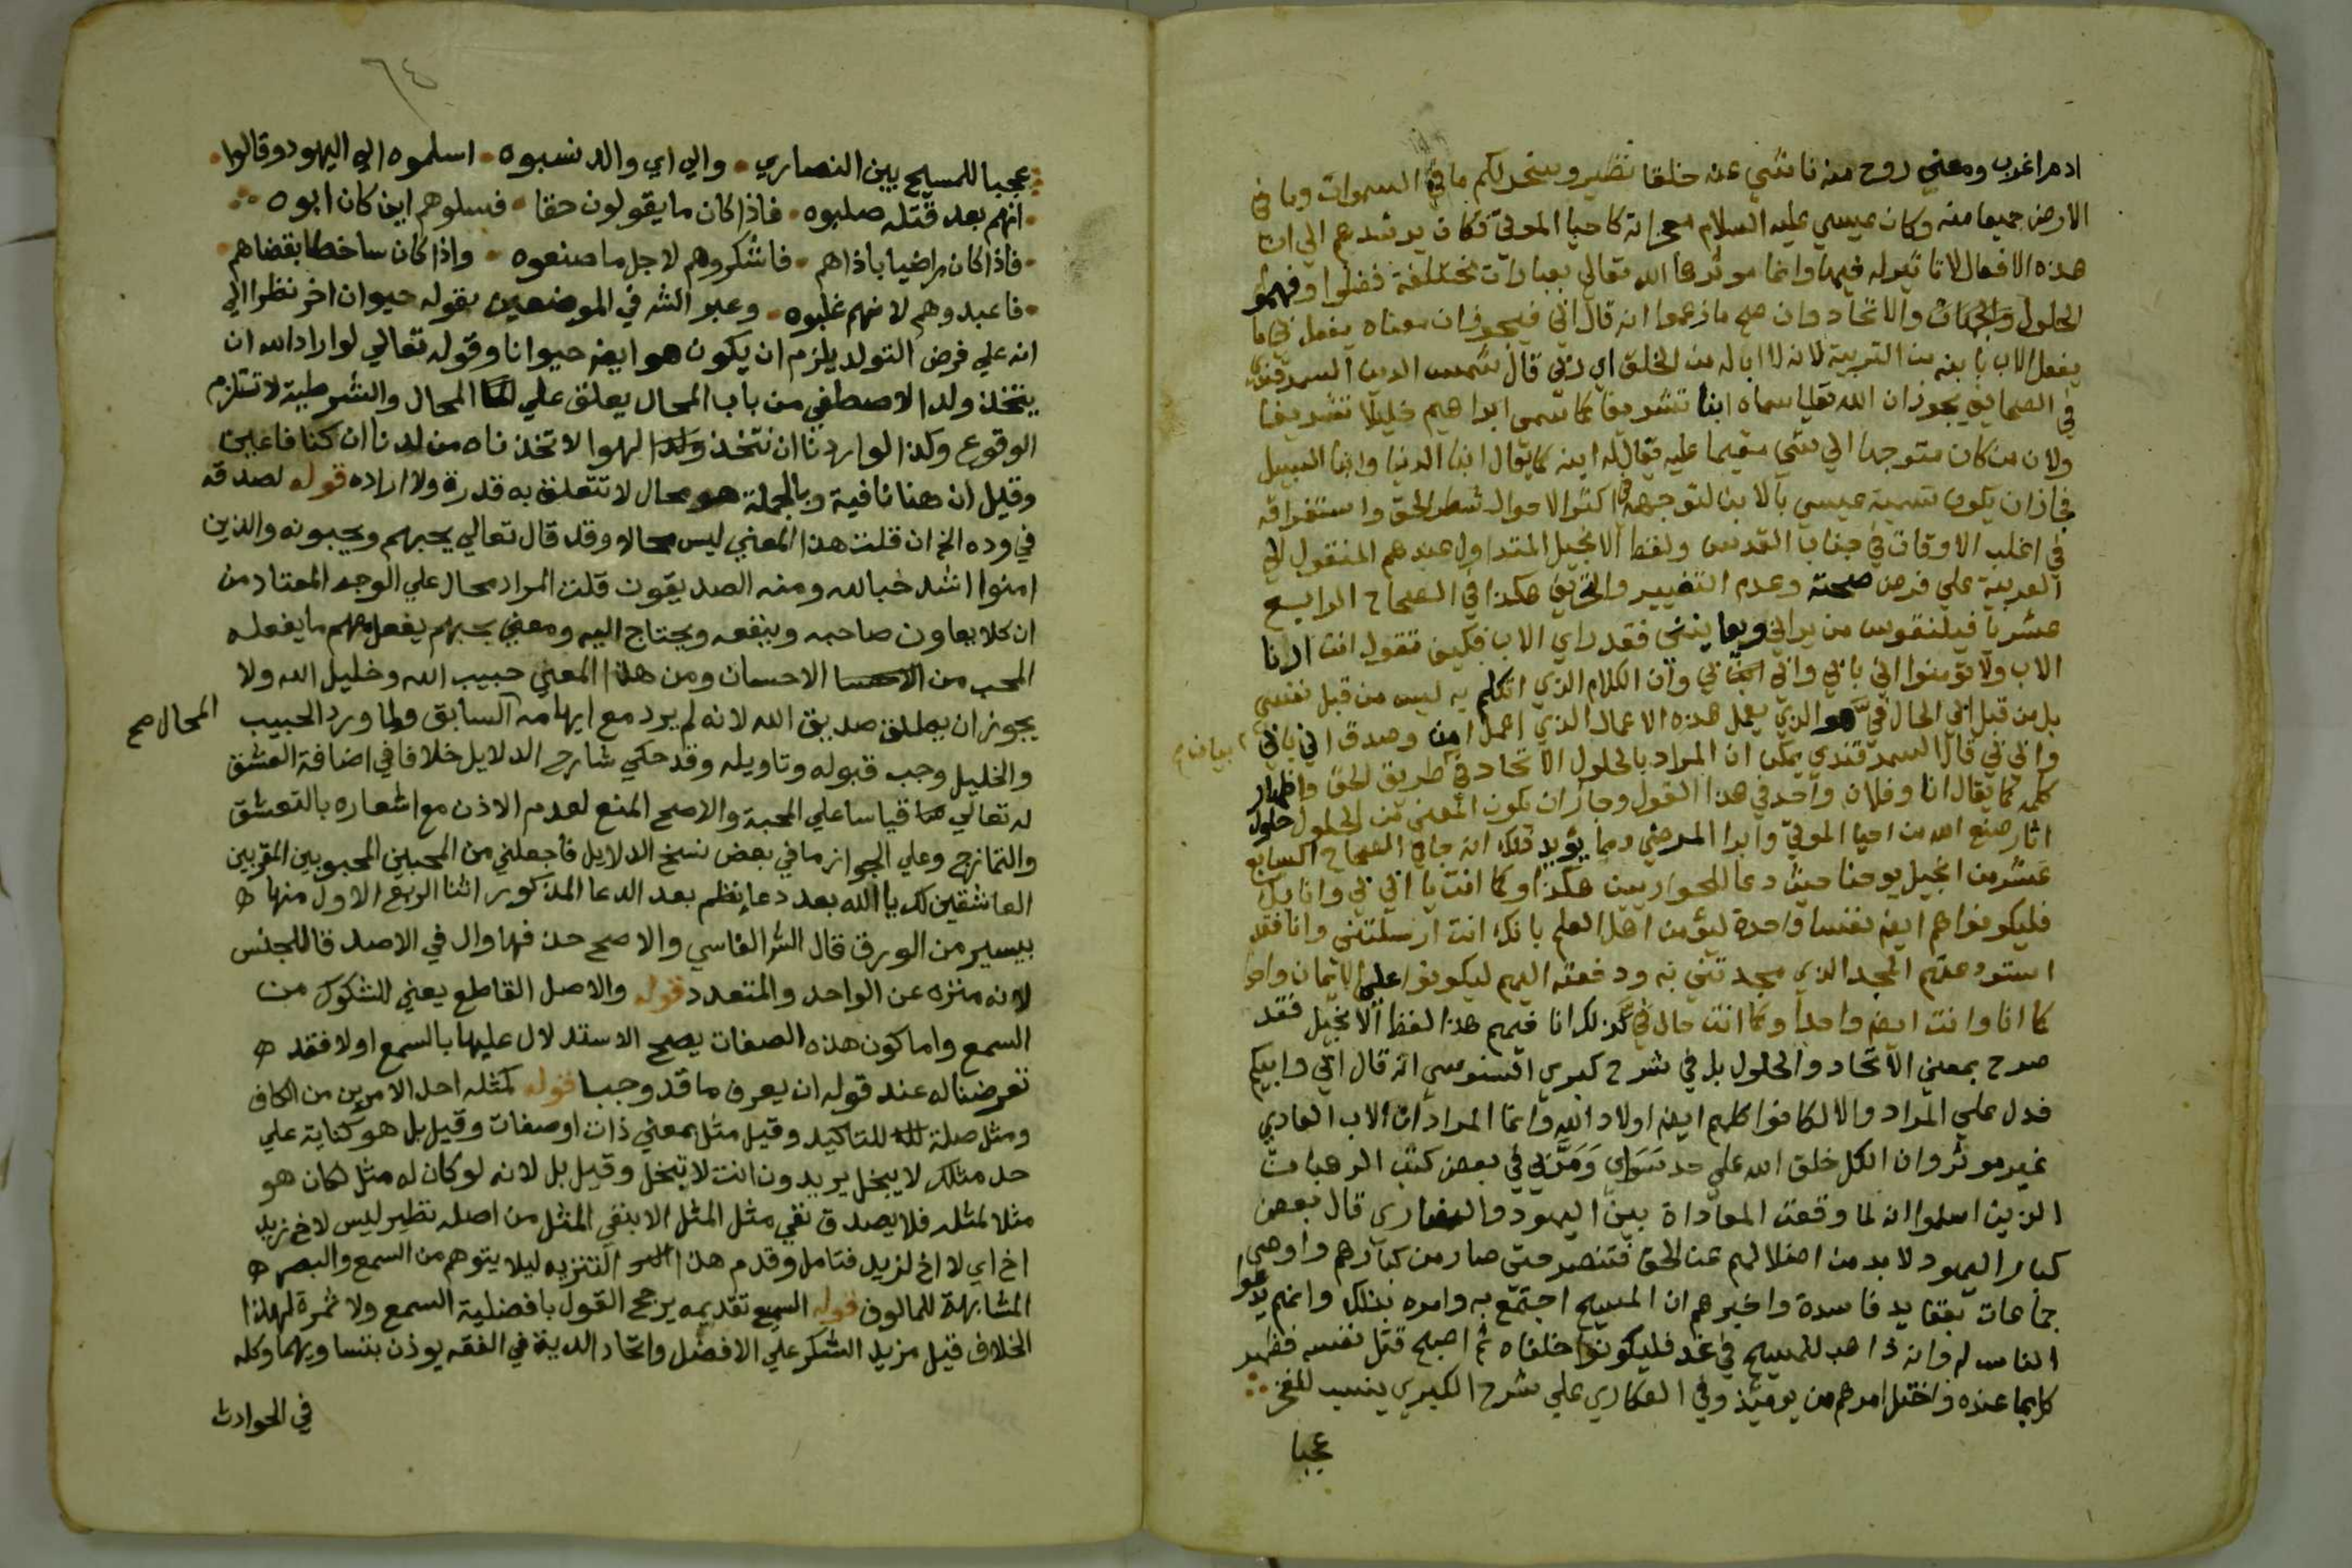 ادم اغرب ومعني روح منه ناشي عنه خلقا نظير وسخر لكم ما في السموات وما في
الارض جميعا منه وكان عيسي عليه السلام معجزاته كاحيا الموتي فكان يرشدهم الي ان
هذه الافعال لا تاثير له فيها وانما موثرها الله تعالي بعبارات مختلفة فضلوا وفهموا
الحلول والاتحاد وان صح ما زعموا انه قال ابي فيجوز ان معناه يفعل بي ما
يفعل الاب بابنه من التربية لانه لا ابا له من الخلق اي ربي قال شمس الدين السمرقندي
في الصحايف يجوز ان الله تعالي سماه ابنا تشريفا كما سمي ابراهيم خليلا تشريفا
ولان من كان متوجها الي شي مقيما عليه يقال له ابنه كما يقال ابنا الدنيا وابنا السبيل
فجاز ان يكون تسمية عيسي بالابن لتوجهه في اكثر الاحوال شطر الحق واستغراقه
في اغلب الاوقات في جناب القدس ولفظ الانجيل المتداول عندهم المنقول الي
العربية علي فرض صحته وعدم التغيير والتحريف هكذا في الصحاح الرابع
عشر يا فيلنقوس من يراني ويعاينني فقد راي الاب فكيف تقول انت ارنا
الاب ولا تؤمنوا اني بابي وابي بي وان الكلام الذي اتكلم به ليس من قبل نفسي
بل من قبل ابي الحال في هو الذي يعمل هذه الاعمال الذي اعمل امن وصدق اني بابي
وابي بي قال السمرقندي يمكن ان المراد بالحلول الاتحاد في طريق الحق واظهار
كلمه كما يقال انا وفلان واحد في هذا القول وجاز ان يكون المعني من الحلول حلول
اثار صنع الله من احيا الموتي وابرا المرضي ومما يؤيد ذلك انه جا في الصحاح السابع
عشر من انجيل يوحنا حيث دعا للحواريين هكذا وكما انت يا ابي بي وانا بك
فليكونوا هم ايضا نفسا واحدة ليؤمن اهل العلم بانك انت ارسلتني وانا فقد
استودعتهم المجد الذي مجدتني به ودفعته اليهم ليكونوا علي الايمان واحدا
كما انا وانت ايضا واحدا وكما انت حال في كذلك انا فيهم هذا لفظ الانجيل فقد
صرح بمعني الاتحاد والحلول بل في شرح كبري السنوسي انه قال ابي وابيكم
فدل علي المراد والا لكانوا كلهم ايضا اولاد الله وانما المراد ان الاب العادي
غير موثر وان الكل خلق الله علي حد سواي ومر بي في بعض كتب الرهبان
الذين اسلموا انه لما وقعت المعاداة بين اليهود والنصاري قال بعض
كبار اليهود لا بد من اضلالهم عن الحق فتنصر حتي صار من كبارهم واوصي
جماعات بعقايد فاسدة واخبرهم ان المسيح اجتمع به وامره بذلك وانهم يدعوا
الناس له وانه ذاهب للمسيح في غد فليكونوا خلفاه ثم اصبح قتل نفسه فظهر
كل بما عنده واختل امرهم من يوميذ وفي العكاري علي شرح الكبري ينسب للفخر
عجبا
٦٤
عجبا للمسيح بين النصاري • والي اي والد نسبوه • اسلموه الي اليهود وقالوا •
• انهم بعد قتله صلبوه • فاذا كان ما يقولون حقا • فسلوهم اين كان ابوه
• فاذا كان راضيا باذاهم • فاشكروهم لاجل ما صنعوه • واذا كان ساخطا بقضاهم •
• فاعبدوهم لانهم غلبوه • وعبر الشه في الموضعين بقوله حيوان اخر نظرا الي
انه علي فرض التولد يلزم ان يكون هو ايضا حيوانا وقوله تعالي لو اراد الله ان
يتخذ ولدا لاصطفي من باب المحال يعلق علي المحال والشرطية لا تستلزم
الوقوع وكذا لو اردنا ان نتخذ لهوا لاتخذناه من لدنا ان كنا فاعلين
وقيل ان هنا نافية وبالجملة هو محال لا تتعلق به قدرة ولا اراده قوله لصدقه
في وده الخ ان قلت هذا المعني ليس محالا وقد قال تعالي يحبهم ويحبونه والذين
امنوا اشد حبا لله ومنه الصديقون قلت المراد محال علي الوجه المعتاد من
ان كلا يعاون صاحبه وينفعه ويحتاج اليه ومعني يحبهم يفعل معهم ما يفعله
المحب من الاحسان ومن هذا المعني حبيب الله وخليل الله ولا
يجوز ان يطلق صديق الله لانه لم يرد مع ايهامه السابق ولما ورد الحبيب
المحال صح
والخليل وجب قبوله وتاويله وقد حكي شارح الدلايل خلافا في اضافة العشق
له تعالي قياسا علي المحبة والاصح المنع لعدم الاذن مع اشعاره بالتعشق
والتمازج وعلي الجواز ما في بعض نسخ الدلايل فاجعلني من المحبين المحبوبين المقربين
العاشقين لك يا الله بعد دعا نظم بعد الدعا المذكور اثنا الربع الاول منها
بيسير من الورق قال الشه الفاسي والاصح حذفها وال في الاصد قا للجنس
لانه منزه عن الواحد والمتعدد قوله والاصل القاطع يعني للشكوك من
السمع واما كون هذه الصفات يصح الاستدلال عليها بالسمع اولا فقد
تعرضنا له عند قوله ان يعرف ما قد وجبا قوله كمثله احد الامرين من الكاف
ومثل صلة للتاكيد وقيل مثل بمعني ذات او صفات وقيل بل هو كناية علي
حد مثلك لا يبخل يريدون انت لا تبخل وقيل بل لانه لو كان له مثل لكان هو
مثلا لمثله فلا يصدق نفي مثل المثل الا بنفي المثل من اصله نظير ليس لاخ زيد
اخ اي لا اخ لزيد فتامل وقدم هذا التنزيه ليلا يتوهم من السمع والبصر
المشابهة للمالوف قوله السمع تقديمه يرجح القول بافضلية السمع ولا ثمرة لهذا
الخلاف قيل مزيد الشكر علي الافضل واتحاد الدية في الفقه يوذن بتساويهما وكله
في الحوادث